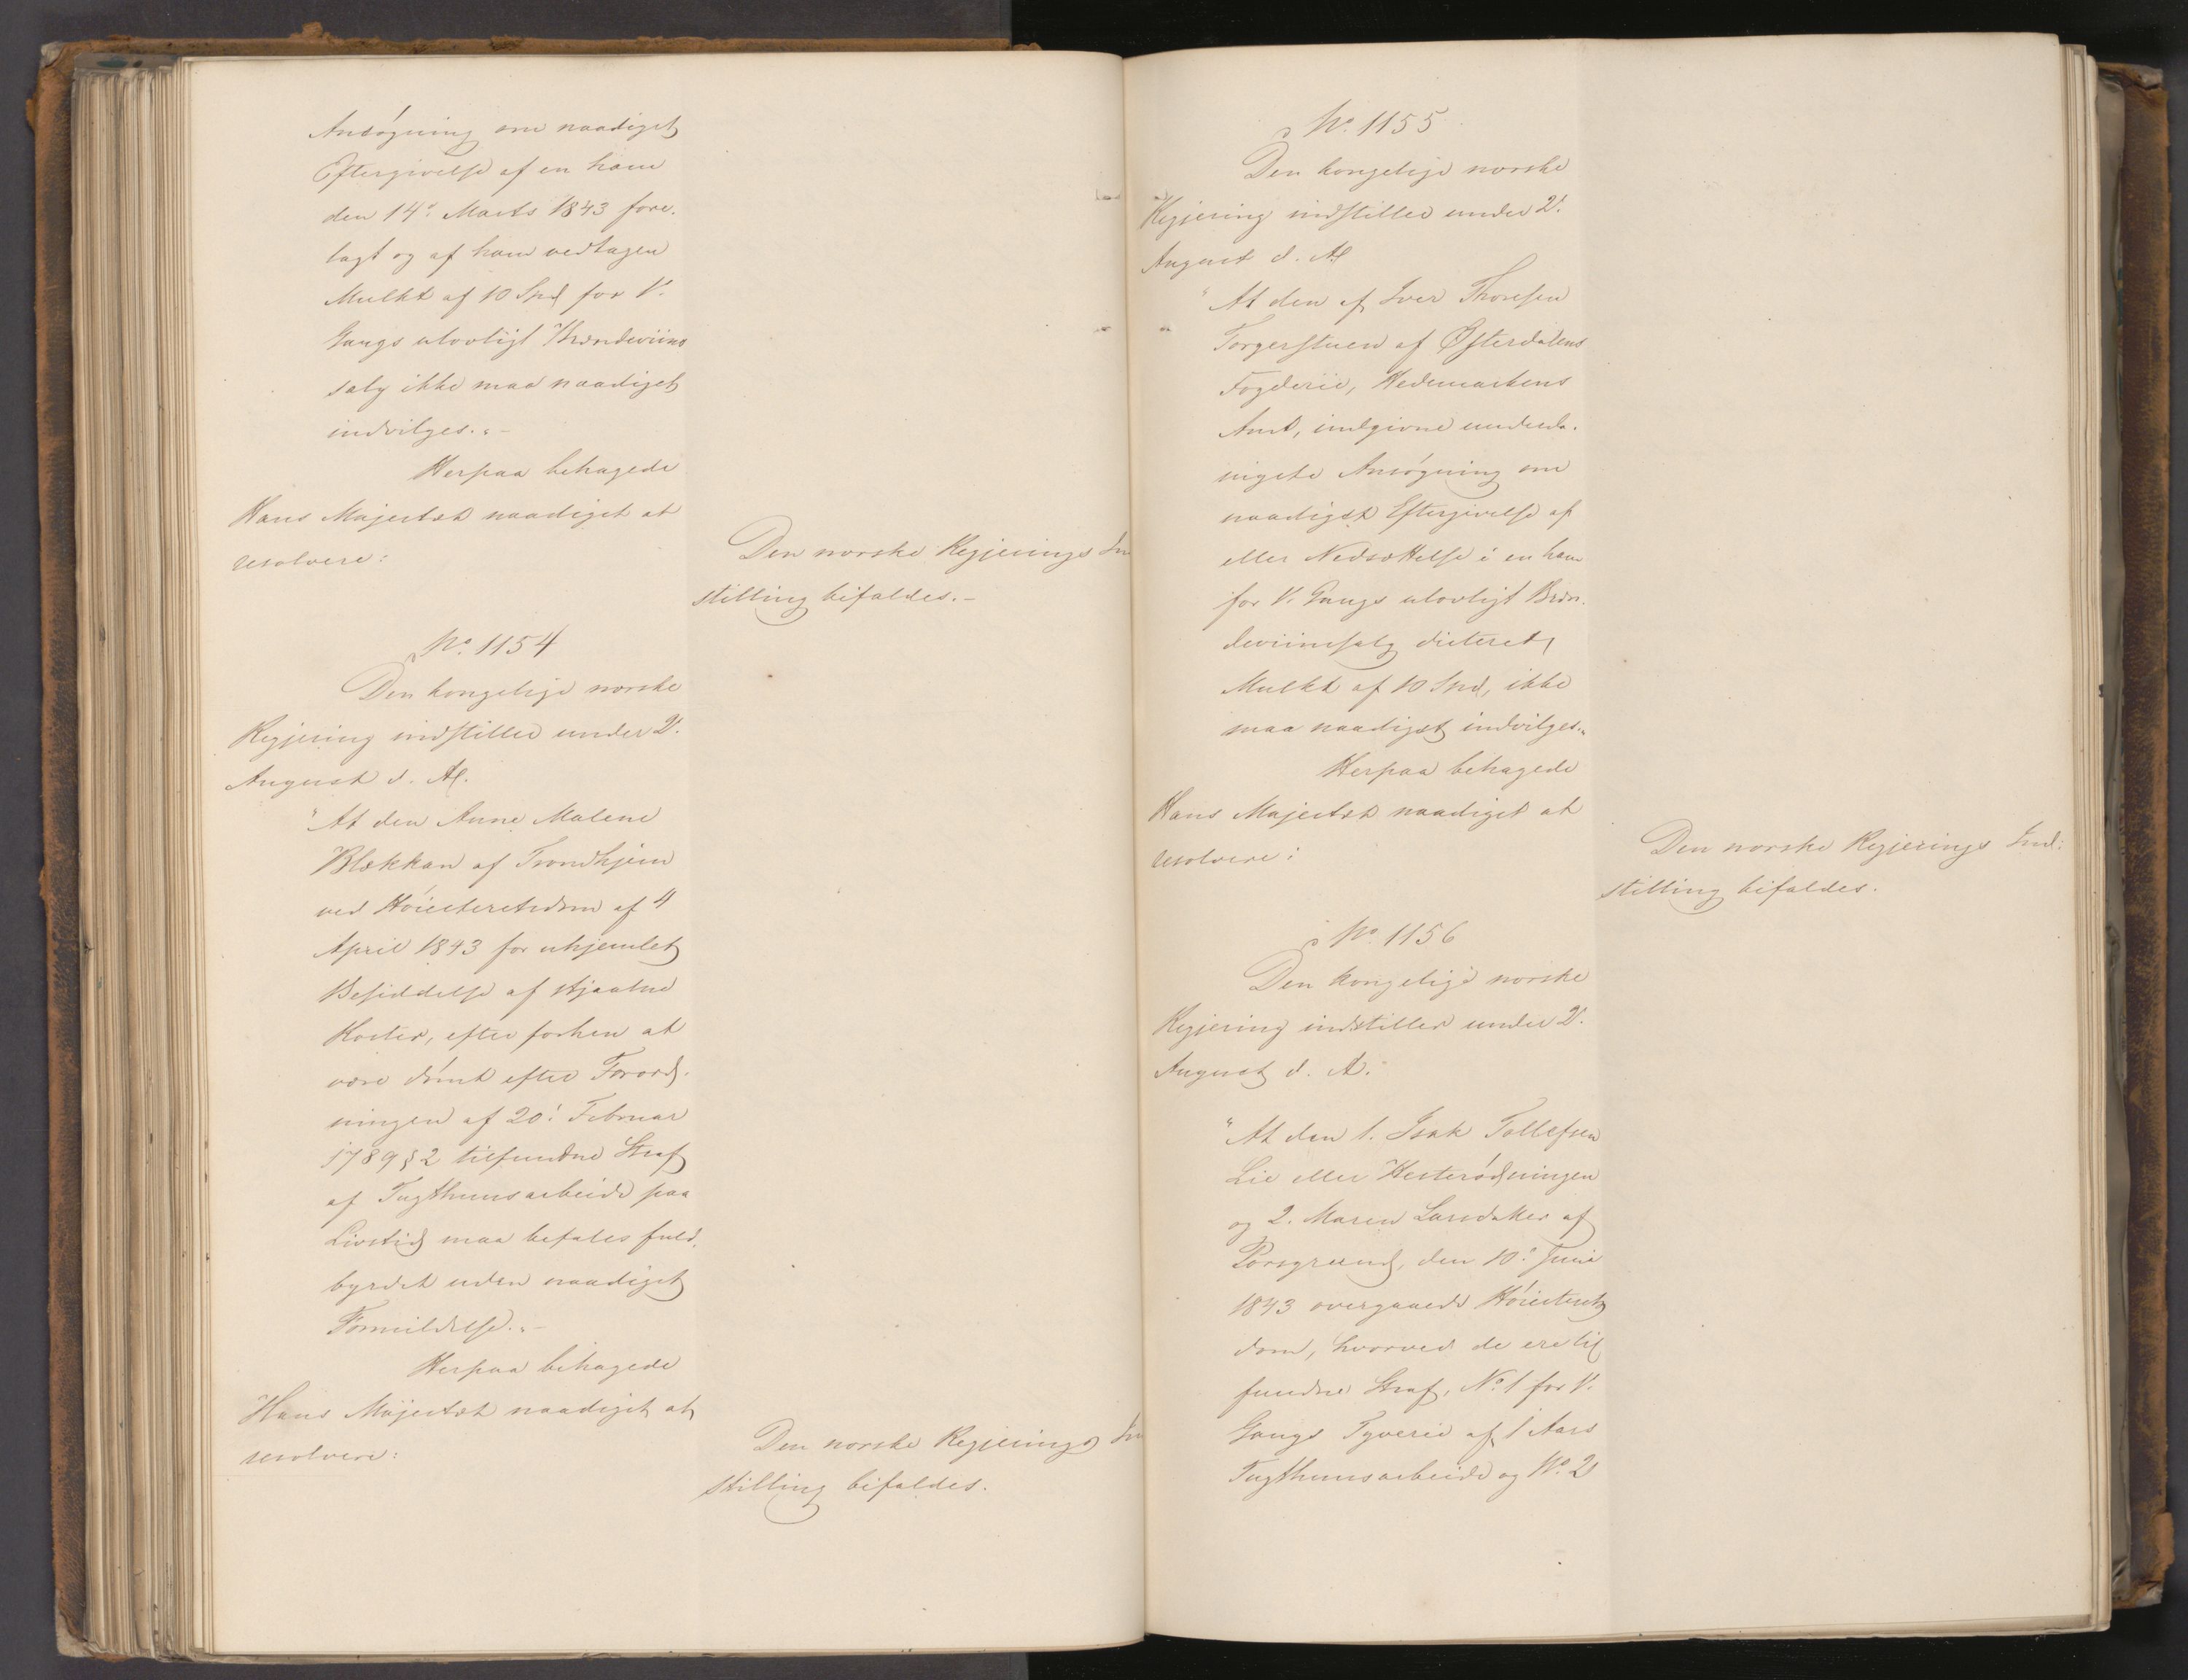 Ansøgning om naadigst
Eftergivelse af en ham
den 14de Marts 1843 fore-
lagt og af ham vedtagen
Mulkt af 10 Spd for 1ste
Gangs ulovligt Brændeviins
salg ikke maa naadigst
indvilges."-
Herpaa behagede
Hans Majestæt naadigst at
resolvere:
Den norske Regjerings In
stilling bifaldes.-
No. 1154
Den kongelige norske
Regjering indstiller under 2.
August d. A.
"At den Anne Malene
Blekkan af Trondhjem
ved Høiesteretsdom af 4
April 1843 for uhjemlet
Besiddelse af stjaalne
Koster, efter forhen at
være dømt efter Forord-
ningen af 20. Februar
1789 § 2 tilfundne Straf
af Tugthuusarbeide paa
Livstid maa befales fuld-
byrdet uden naadigst
Formildelse."-
Herpaa behagede
Hans Majestæt naadigst at
resolvere:
Den norske Regjerings In
stilling bifaldes.
No. 1155
Den kongelige norske
Regjering indstiller under 2.
August d. A.
"At den af Iver Thoresen
Torgerstuen af Østerdalens
Fogderie, Hedemarkens
Amt, indgivne underda-
nigste Ansøgning om
naadigst Eftergivelse af
eller Nedsættelse i en ham
for 1. Gangs ulovligt Bræn-
deviinssalg dicteret
Mulkt af 10 Spd, ikke
maa naadigst indvilges."
Herpaa behagede
Hans Majestæt naadigst at
resolvere:
Den norske Regjerings Ind-
stilling bifaldes.
No. 1156
Den kongelige norske
Regjering indstiller under 2.
August d. A.
"At den 1. Isak Tollefsen
Lie eller Hesterødningen
og 2. Maren Larsdatter af
Porsgrund, den 10de Juni
1843 overgaaede Høiesterets
dom, hvorved de ere til
fundne Straf, No. 1 for 1.
Gangs Tyverie af 1 Aars
Tugthuusarbeide og No. 2